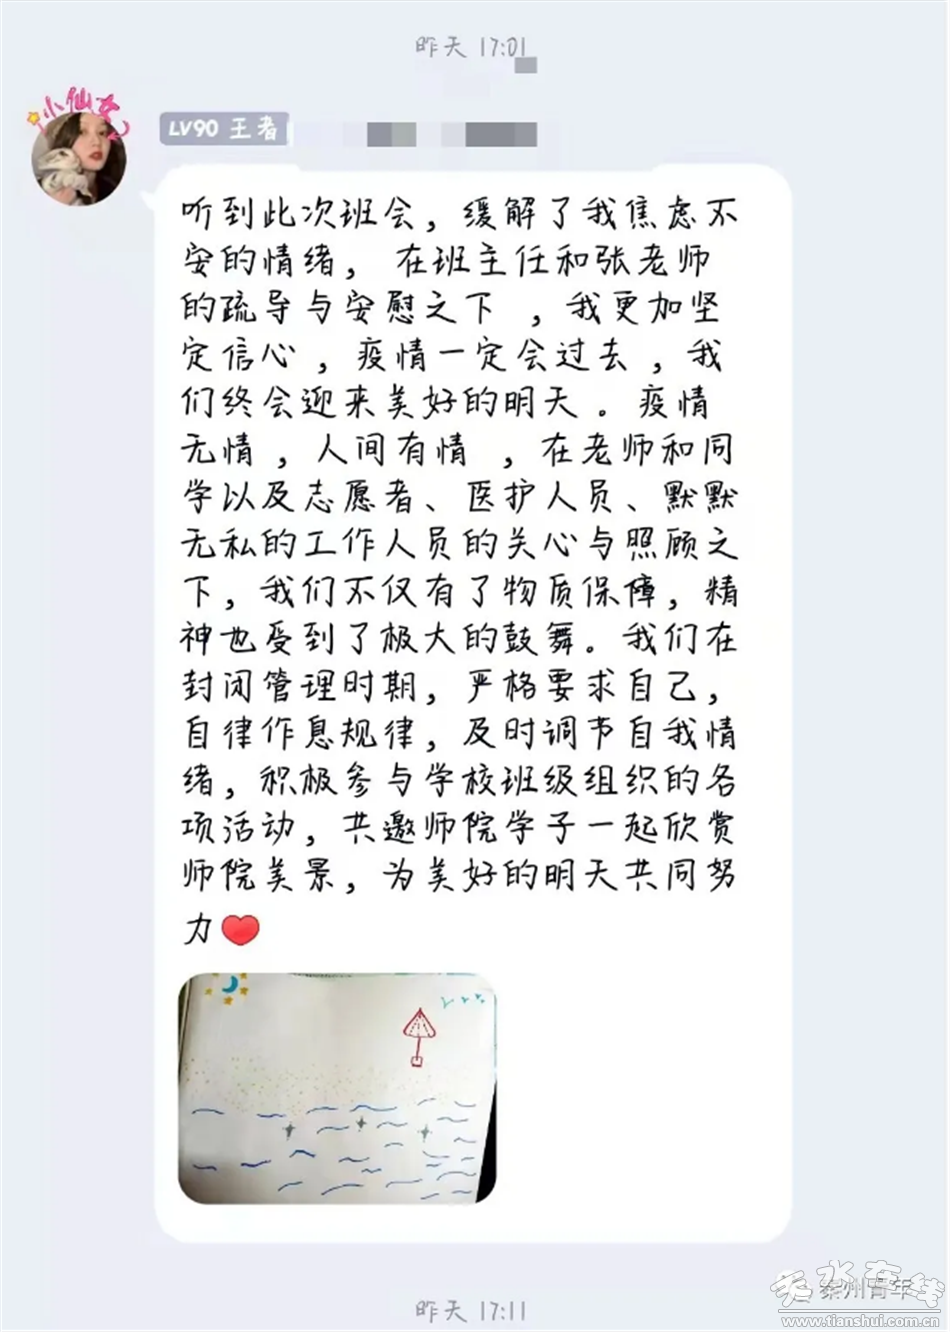 昨天 17:01
小仙女
LV90 王者
听到此次班会，缓解了我焦虑不
安的情绪， 在班主任和张老师
的疏导与安慰之下 ，我更加坚
定信心，疫情一定会过去，我
们终会迎来美好的明天。疫情
无情，人间有情 ，在老师和同
学以及志愿者、医护人员、默默
无私的工作人员的关心与照顾之
下，我们不仅有了物质保障，精
神也受到了极大的鼓舞。我们在
封闭管理时期，严格要求自己，
自律作息规律，及时调节自我情
绪，积极参与学校班级组织的各
项活动，共邀师院学子一起欣赏
师院美景，为美好的明天共同努
力❤
秦州青年
天水在线
www.tianshui.com.cn
昨天 17:11